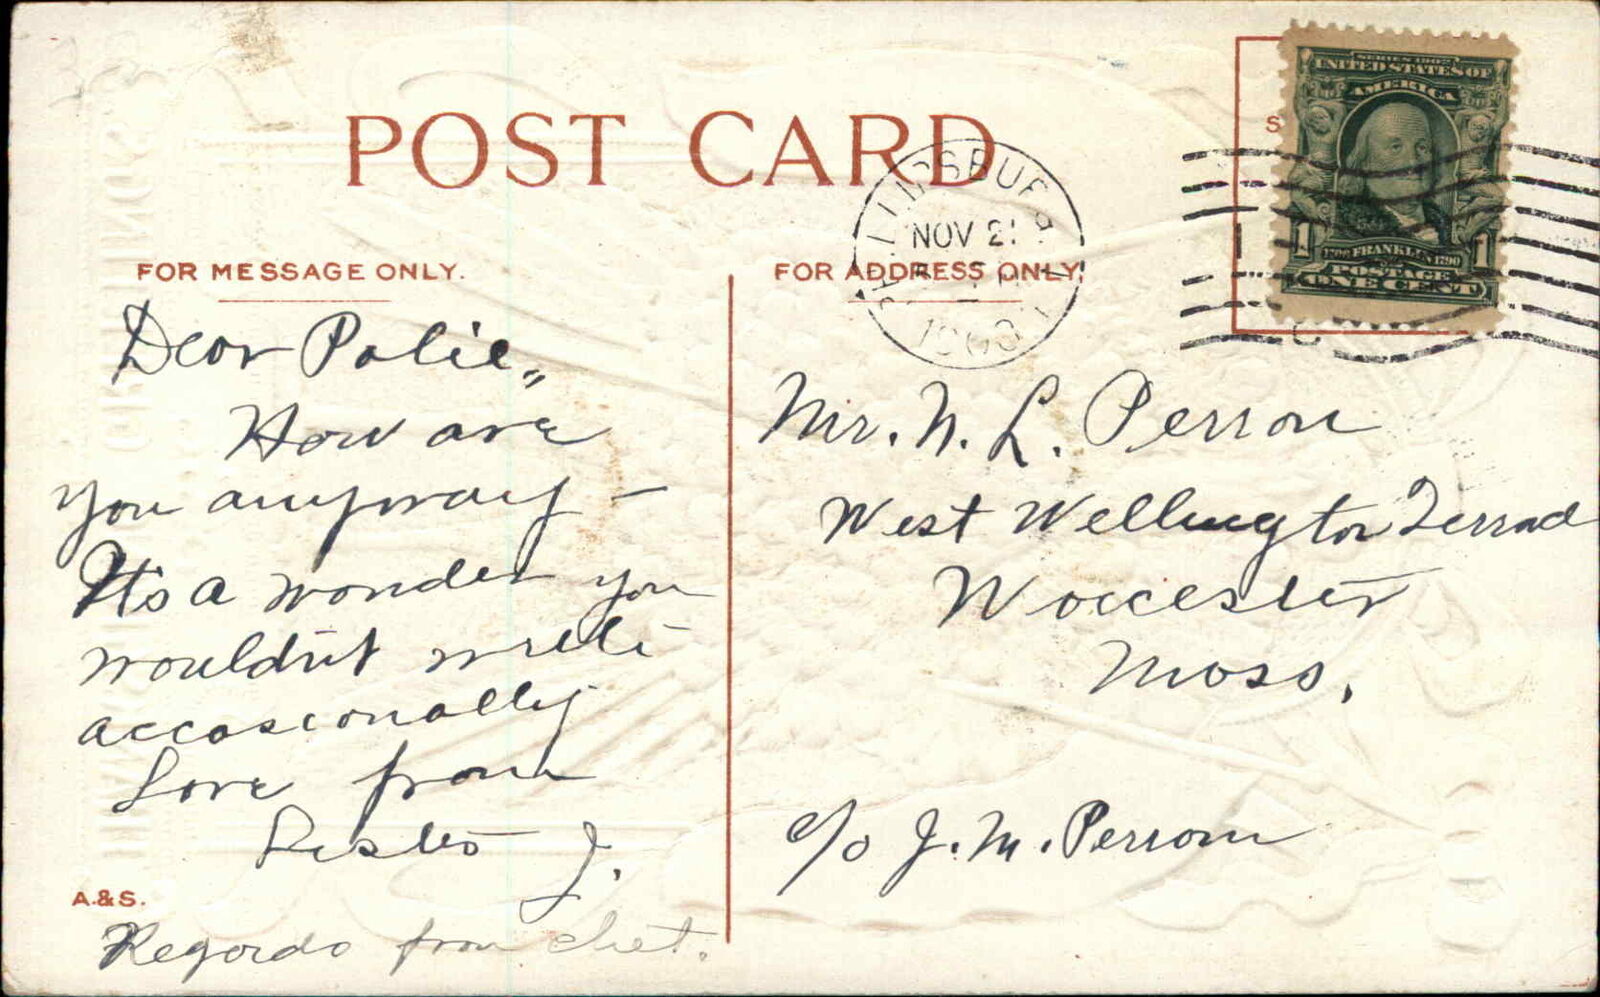 POST CARD
SERIES 1902
UNITED STATES OF
AMERICA
1 1
1706 FRANKLIN 1790
POSTAGE
ONE CENT
PHILLIPSBURG
NOV 21
1908
FOR MESSAGE ONLY.
FOR ADDRESS ONLY.
Dear Polie,,
How are
you anyway –
It's a wonder you
wouldn't write
accasionally
Love from
J.
A.&S.
Regards from Chet.
Mr. N. L. Perron
West Wellington
Worcester
Mass.
c/o J. M. Perron